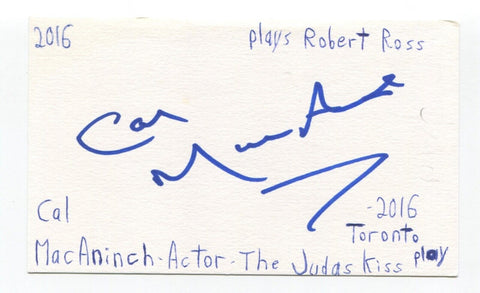 2016 plays Robert Ross
Cal
Cal
-2016
Toronto
MacAninch-Actor-The Judas Kiss play